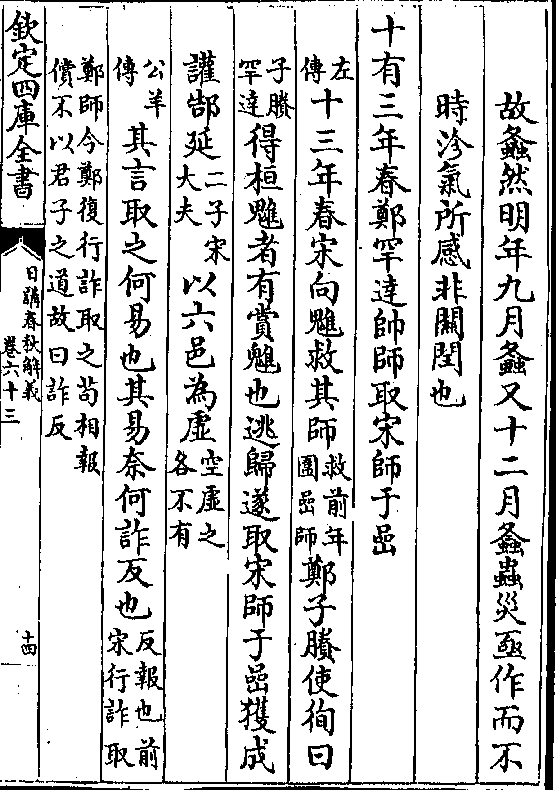 故螽然明年九月螽又十二月螽蟲災亟作而不
時沴氣所感非關閏也
十有三年春鄭罕達帥師取宋師于嵒
左傳十三年春宋向魋救其師救前年圍嵒師鄭子賸使徇曰
子賸罕達得桓魋者有賞魋也逃歸遂取宋師于嵒獲成
讙郜延二子宋大夫以六邑為虛空虛之各不有
公羊傳其言取之何易也其易奈何詐反也反報也前宋行詐取
鄭師今鄭復行詐取之苟相報償不以君子之道故曰詐反
欽定四庫全書
日講春秋解義
卷六十三
十四